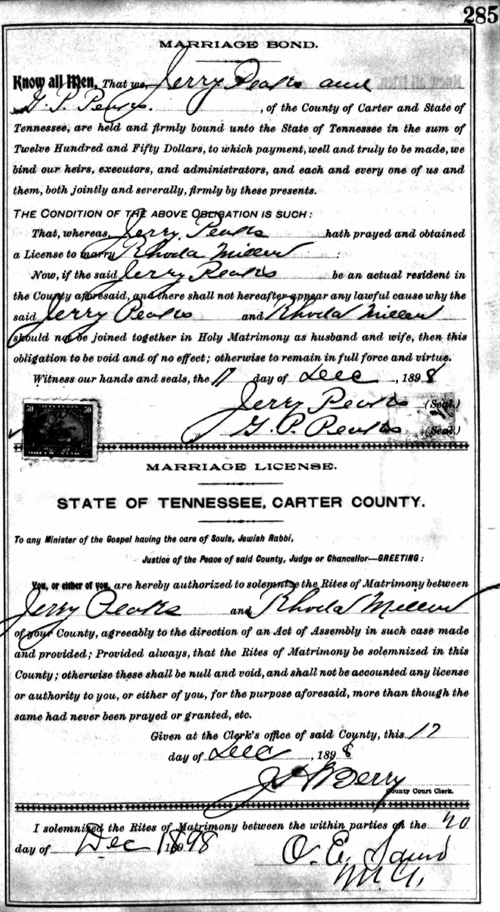 285
MARRIAGE BOND.
Know all Men, That we, Jerry Peaks and
G. P. Peaks. , of the County of Carter and State of
Tennessee, are held and firmly bound unto the State of Tennessee in the sum of
Twelve Hundred and Fifty Dollars, to which payment, well and truly to be made, we
bind our heirs, executors, and administrators, and each and every one of us and
them, both jointly and severally, firmly by these presents.
THE CONDITION OF THE ABOVE OBLIGATION IS SUCH:
That, whereas, Jerry Peaks hath prayed and obtained
a License to marry Rhoda Miller :
Now, if the said Jerry Peaks be an actual resident in
the County aforesaid, and there shall not hereafter appear any lawful cause why the
said Jerry Peaks and Rhoda Miller
should not be joined together in Holy Matrimony as husband and wife, then this
obligation to be void and of no effect; otherwise to remain in full force and virtue.
Witness our hands and seals, the 17 day of Dec , 1898
Jerry Peaks (Seal.)
G. P. Peaks (Seal.)
50 50
MARRIAGE LICENSE.
STATE OF TENNESSEE, CARTER COUNTY.
To any Minister of the Gospel having the care of Souls, Jewish Rabbi,
Justice of the Peace of said County, Judge or Chancellor—GREETING:
You, or either of you, are hereby authorized to solemnize the Rites of Matrimony between
Jerry Peaks and Rhoda Miller
of your County, agreeably to the direction of an Act of Assembly in such case made
and provided; Provided always, that the Rites of Matrimony be solemnized in this
County; otherwise these shall be null and void, and shall not be accounted any license
or authority to you, or either of you, for the purpose aforesaid, more than though the
same had never been prayed or granted, etc.
Given at the Clerk's office of said County, this 17
day of Dec , 1898
Berry
County Court Clerk.
I solemnized the Rites of Matrimony between the within parties on the 20
day of Dec 1898
O. E.
M. G.